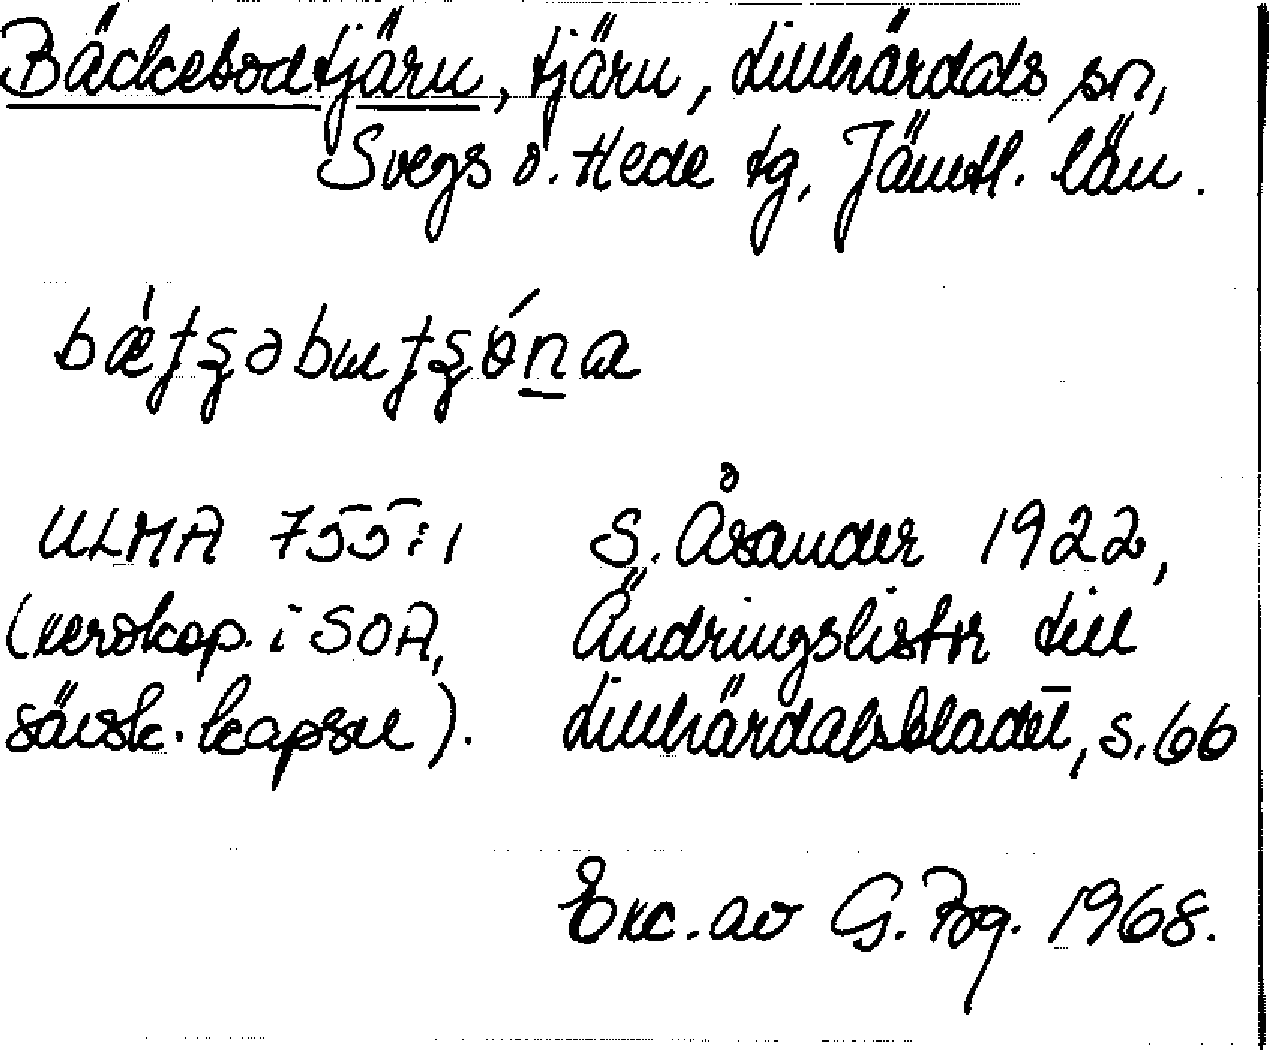 Bäckebodtjärn, tjärn, Lillhärdals sn,
Svegs o. Hede tg, Jämtl. län.
ULMA 755:1 S. Åsander 1922,
(xeroxkop. i SOA, Ändringslistor till
särsk. kapsel). Lillhärdalsbladet, s. 66
Exc. av G. 1968.